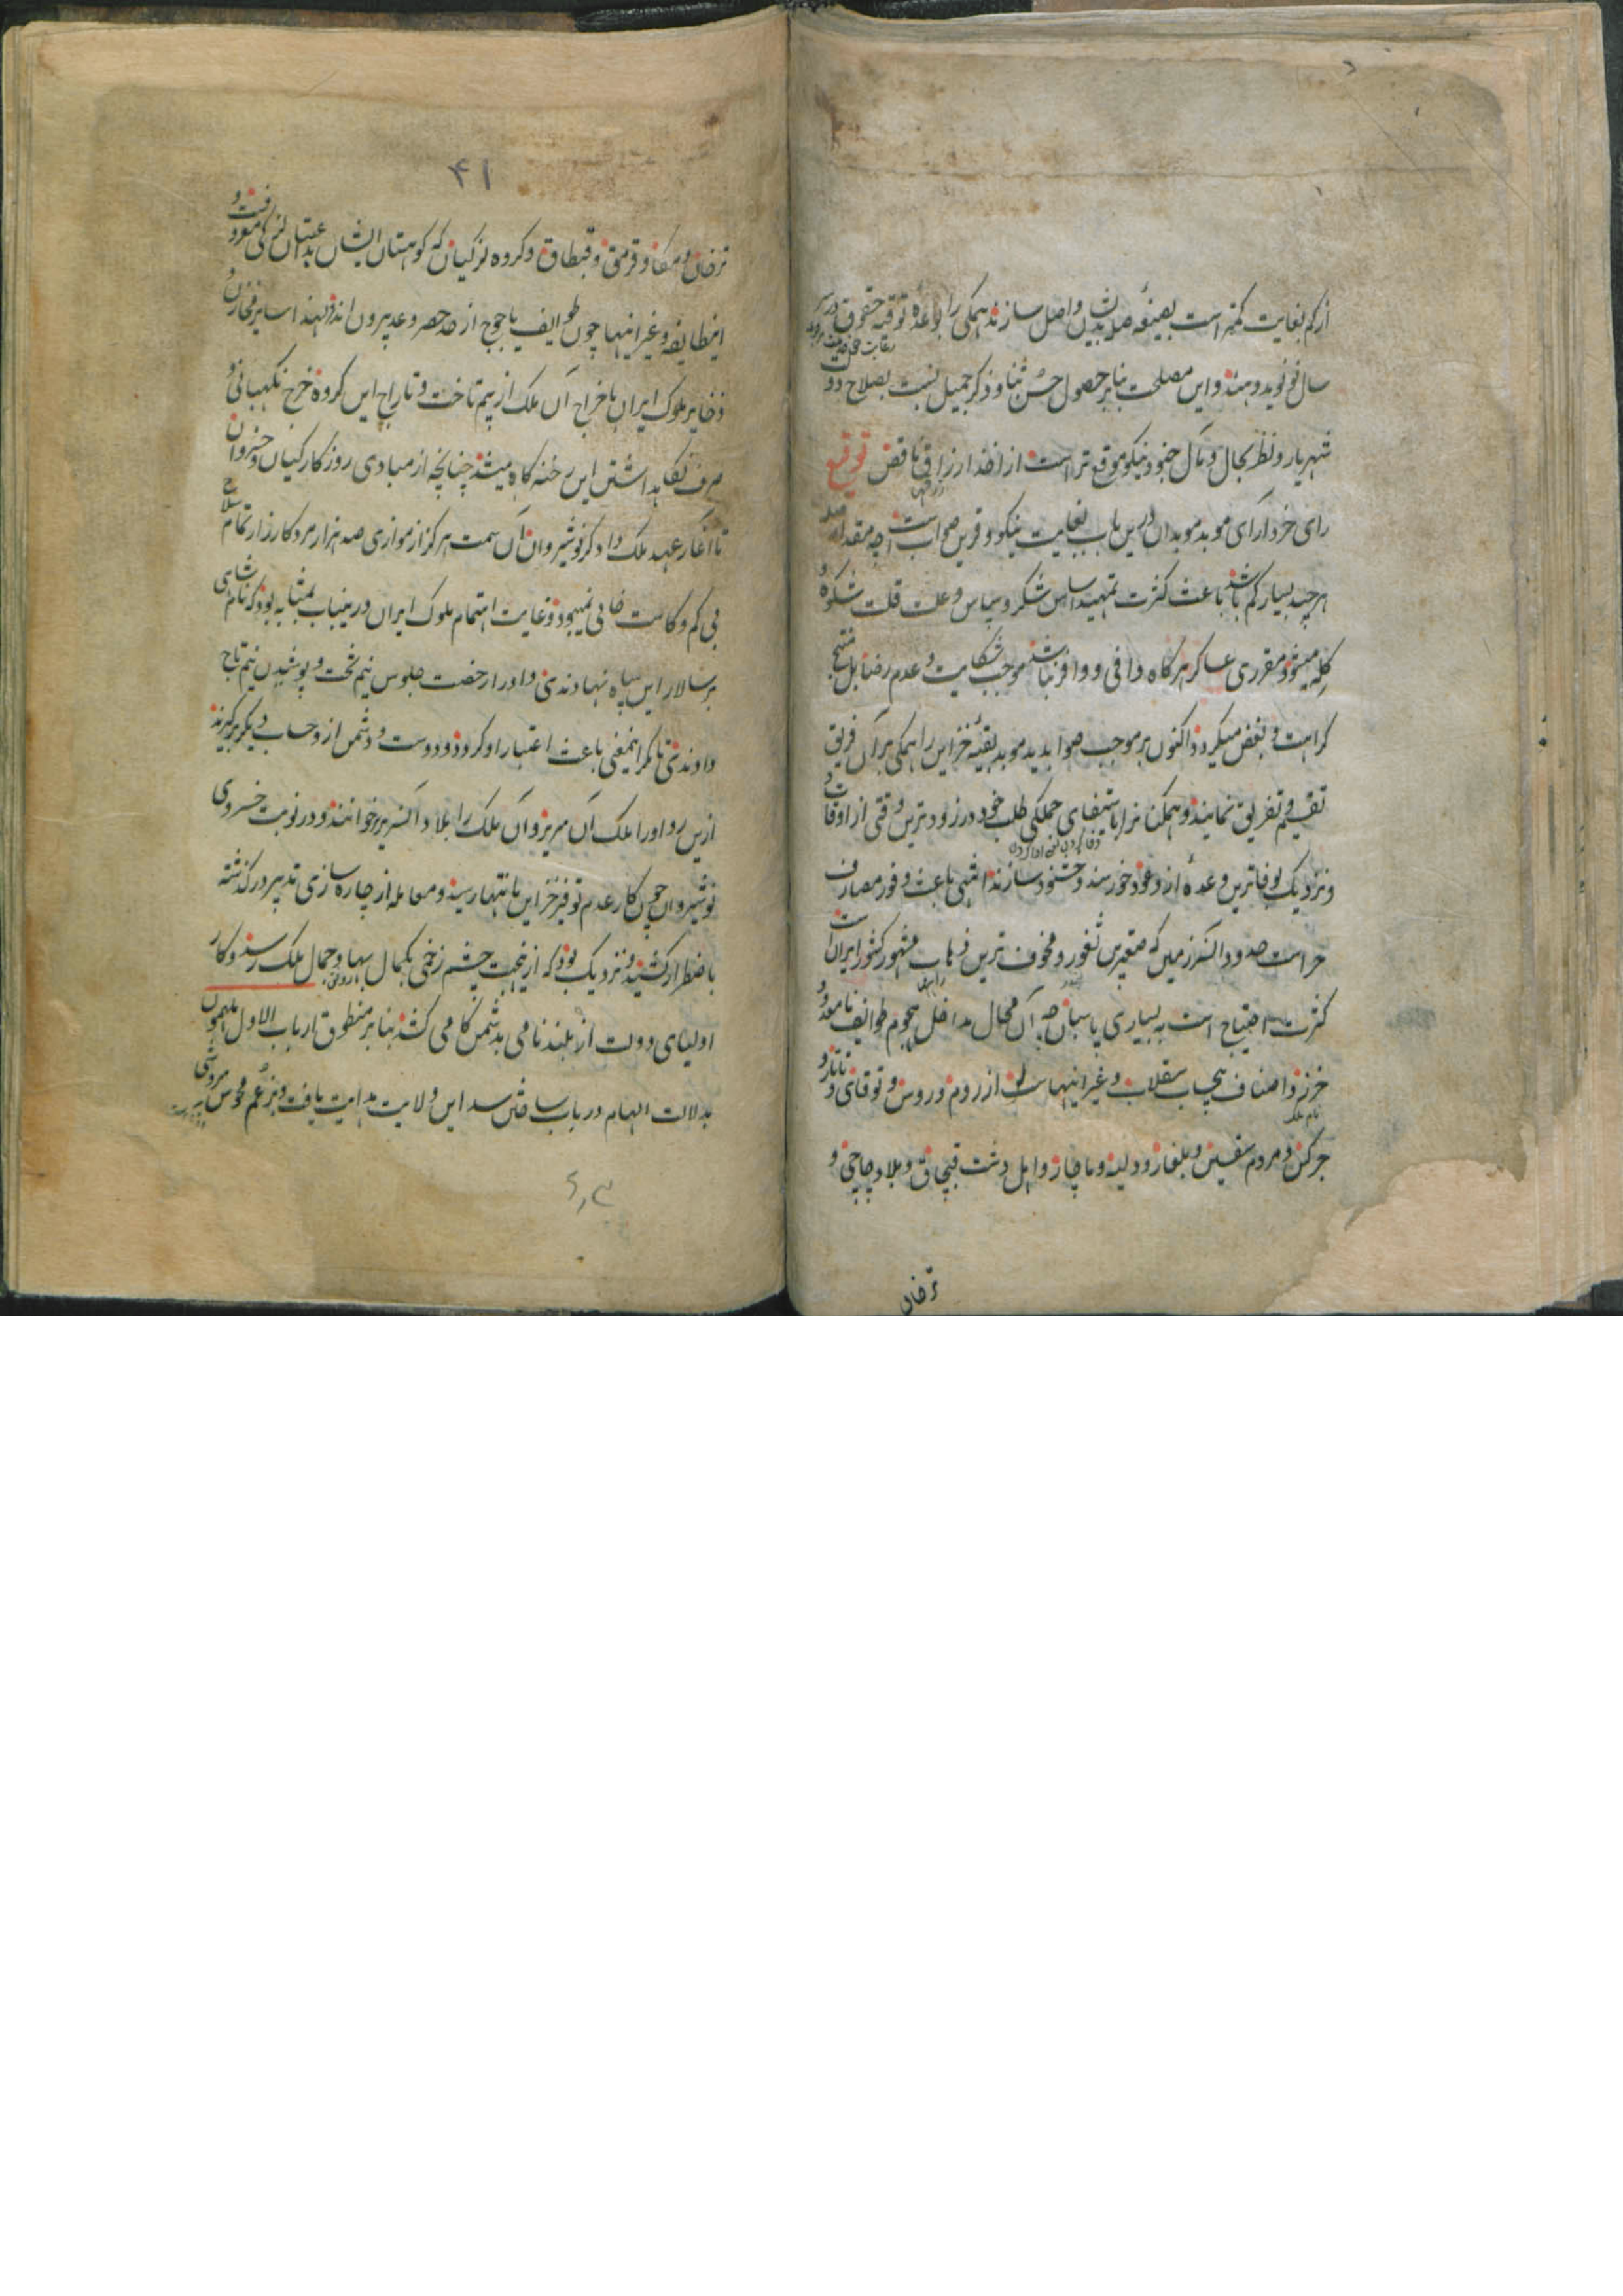 ازکم بغایت کمتر است بصیغهٔ صله بدیشان واصل سازند همکی را بوعدهٔ توفیهٔ حقوق در سر
سال نو نوید دهند و این مصلحت بنابر حصول حسن ثنا و ذکر جمیل نسبت بصلاح دو
شهریار و نظر بحال و مآل خود نیکو موقع تر است از اخذ ارزاق ناقص توقیع
رای خردآرای موبد موبدان درین باب بغایت نیکو و قرین صواب است چه مقدار صله
هرچند بسیار کم باشد باعث کثرت تمهید اساس شکر و سپاس و علت قلت شکوه و
کله میشود و مقرری عساکر هرکاه وافی و وافر نباشد موجب شکایت و عدم رضا بل منتج
کراهت و بغض میکردد اکنون بر موجب صوابدید موبد بقیهٔ خزاین را همکی بر آن فریق
تقسیم و تفریق نمایند و همکنانرا باستیفای جملکی طلب خود در زودترین وقتی از اوقات و
نزدیک بوفاترین وعدهٔ از وعود خورسند و خشنود سازند انتهی باعث وفور مصارف
حراست حدود السرزمین که صعبترین ثغور و مخوف ترین فرهاب مشهور کشور ایران است
کثرت احتیاج است به بسیاری پاسبان چه آن محال مداخل هجوم طوایف نامعدود
خزر و اصناف بیحساب سقلاب و غیر اینهاست از روم و روس و توقای و تاتار و
نام ملک
جرکس و مردم سقسین و بلغار و ولینه و ماچار و اهل دشت قبچاق و بلاد چاچی و
ترخان
۴۱
ترخان و سکا و قرمق و قبطاق و کروه لزکیان که کوهستان ایشان بدعتبان لزکی معروفست و
اینطایفه و غیر اینها چون طوایف یاجوج از حد حصر و عد بیرون اند لهذا سایر مخازن و
ذخایر ملوک ایران باخراج آن ملک از بیم تاخت و تاراج این کروه خرج نکهبانی و
صرف نکاهداشتن این رخنه کاه میشد چنانچه از مبادی روزکار کیان و خسروان
تا آغاز عهد ملک دادکر نوشیروان آن سمت هرکز از موازی صد هزار مرد کارزار تمام سلاح
بی کم و کاست خالی نمیبود و غایت اهتمام ملوک ایران درینباب بمثابه بود که نام شاهی
بر سالار این سپاه نهادندی و او را رخصت جلوس نیم تخت و پوشیدن نیم تاج
دادندی تا مکر اینمعنی باعث اعتبار او کردد و دوست و دشمن ازو حساب دیکر برکیرند
ازین رو او را ملک آن مرز و آن ملک را بلاد السریر خوانند و در نوبت خسروی
نوشیروان چون کار عدم توفیر خزاین بانتها رسید و معامله از چاره سازی تدبیر درکذشته
باضطرار کشید و نزدیک بود که ازینجهت چشم زخمی بکمال بها و جمال ملک رسد و کار
اولیای دولت از بلندنامی بدشمن کامی کشد بنابر منطوق ارباب الدول ملهمون
بدلالت الهام در باب ساختن سد این ولایت هدایت یافت و بزعم مجوس